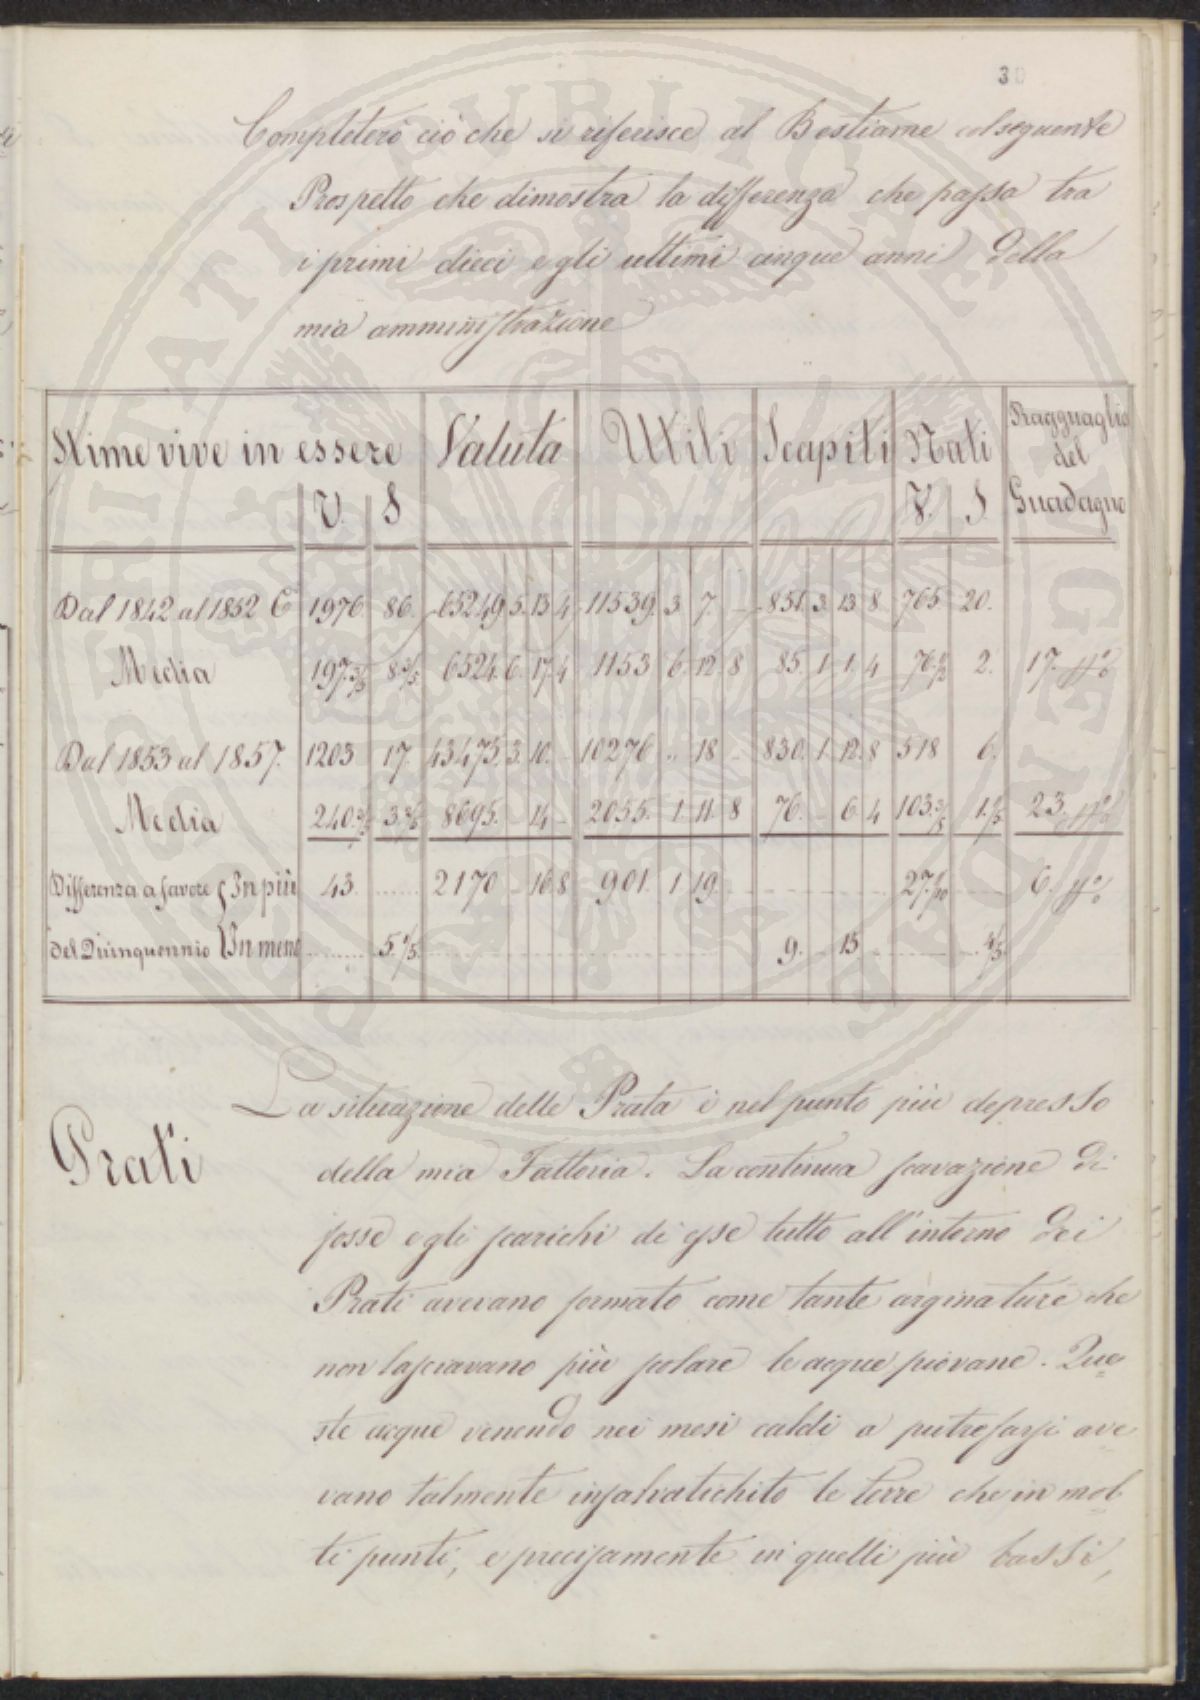 30
Completerò ciò che si riferisce al Bestiame col seguente
Prospetto che dimostra la differenza che passa tra
i primi dieci e gli ultimi cinque anni della
mia amministrazione
Stime vive in essere | Valuta | Utili | Scapiti | Nati | Ragguaglio del Guadagno
V. | S | V. | S.
Dal 1842 al 1852 | 1976 | 86. | 65249. 5. 13. 4 | 11539. 3. 7. | 851. 3. 13. 8 | 765 | 20.
Media | 197.3/5 | 8.3/5 | 6524. 6. 17. 4 | 1153. 6. 12. 8 | 85. 1. 1. 4 | 76. | 2. | 17.
Dal 1853 al 1857. | 1203 | 17. | 43475. 3. 10. | 10276 .. 18 | 830. 1. 12. 8 | 518 | 6.
Media | 240.3/5 | 3.2/5 | 8695. 14 | 2055. 1. 11. 8 | 76. 6. 4 | 103.3/5 | 1.1/5 | 23.
Differenza a favore In più | 43 | 2170 16. 8 | 901. 1. 19. | 27.1/10 | 6.
del Quinquennio In meno | 5.1/5 | 9. 15 | 4/5
Prati
La situazione delle Prata è nel punto più depresso
della mia Fattoria. La continua scavazione di
fosse e gli scarichi di esse tutto all'intorno dei
Prati avevano formato come tante arginature che
non lasciavano più scolare le acque piovane. Que=
ste acque venendo nei mesi caldi a putrefarsi ave
vano talmente insalvatichito le terre che in mol
ti punti, e precisamente in quelli più bassi,